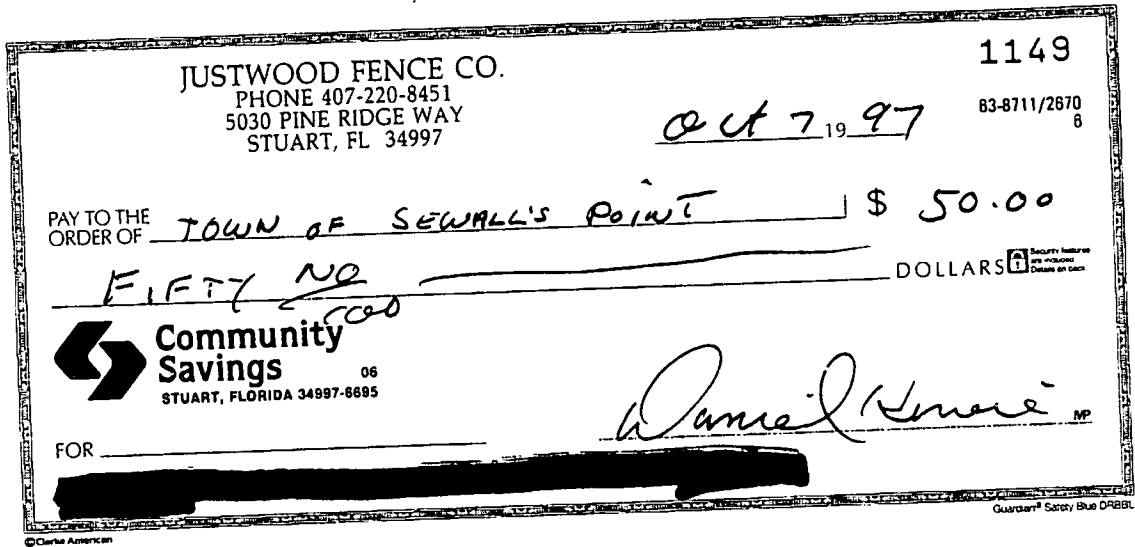 1149
JUSTWOOD FENCE CO.
PHONE 407-220-8451
5030 PINE RIDGE WAY
STUART, FL 34997
Oct 7 19 97
63-8711/2670
6
PAY TO THE
ORDER OF TOWN OF SEWALL'S POINT $ 50.00
FIFTY NO/100 DOLLARS
Security features
are included
Details on back
Community
Savings
06
STUART, FLORIDA 34997-6695
Daniel
MP
FOR
©Clarke American
Guardian® Safety Blue DRBBL